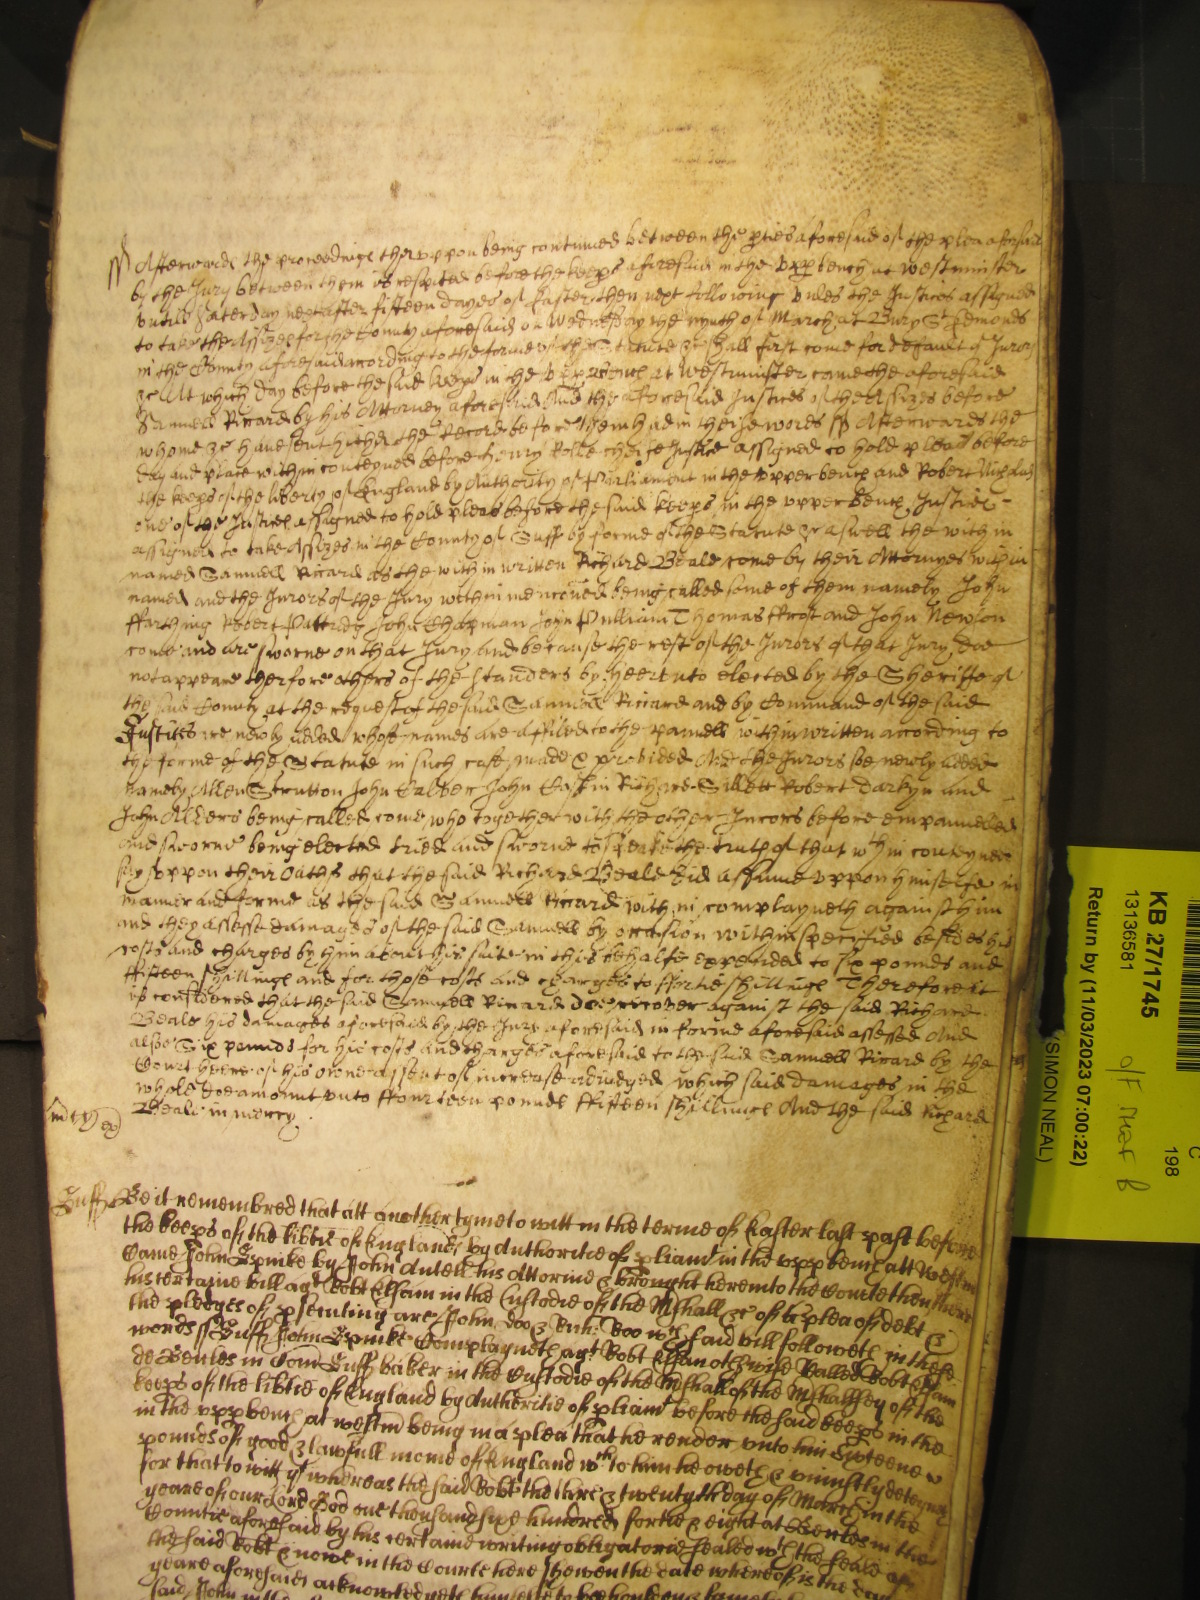 Afterwards the proceedings thereuppon being continued betweene the pties aforesaid of the plea aforesaid
by the Jury betweene them is respited before the keeps aforesaid in the upp bench at Westminster
untill Saterday next after fifteen dayes of Easter then next following unles the Justices assigned
to take the Assizes for the County aforesaid on Wednesday the nynth of March at Bury St Edmonds
in the County aforesaid according to the forme of the Statute &c shall first come for default of Jurors
&c At which day before the said keeps in the upp bench at Westminster came the aforesaid
Samuell Ricard by his Attorney aforesaid And the aforesaid Justices of the Assizes before
whome &c have sent hither the Record before them had in theise words ss Afterwards the
day and place within conteyned before Henry Rolle cheife Justice assigned to hold pleas before
the keeps of the liberty of England by Authority of Parliament in the upper bench and Robert Nicholas
one of the Justices assigned to hold pleas before the said keeps in the upper bench Justices
assigned to take Assizes in the County of Suff by forme of the Statute &c aswell the within
named Samuell Ricard as the within written Richard Beale come by their Attorneyes within
named and the Jurors of the Jury within menconed being called some of them namely John
ffarthing Robert Pattridg John Chapman John Pulliam Thomas ffrost and John Newson
come and are sworne on that Jury and because the rest of the Jurors of that Jury doe
not appeare therfore others of the standers by heerunto elected by the Sheriffe of
the said County at the request of the said Samuell Ricard and by Command of the said
Justices are newly added whose names are affiled to the pannell within written according to
the forme of the Statute in such case made & provided And the Jurors soe newly added
namely Allen Strutton John Calver John Gaskin Richard Sillett Robert Darkyn and
John Alders being called come who together with the other Jurors before empannelled
and sworne being elected tried and sworne to speake the truth of that within conteyned
say uppon their oaths that the said Richard Beale did assume uppon himselfe in
manner and forme as the said Samuell Ricard within complayneth against him
and they assesse damages of the said Samuell by occasion within specified besides his
costs and charges by him about his suite in this behalfe expended to six pounds and
ffifteen shillings and for those costs and charges to ffortie shillings Therefore it
is considered that the said Samuell Ricard doe recover against the said Richard
Beale his damages aforesaid by the Jury aforesaid in forme aforesaid assessed And
alsoe Six pounds for his costs and charges aforesaid to the said Samuell Ricard by the
Court heere of his owne assent of increase adiudged which said damages in the
whole doe amount unto ffourteen pounds ffifteen shillings And the said Richard
Beale in mercy
mcy
Suff Be it remembred that att another tyme to witt in the terme of Easter last past before
the keeps of the libtie of England by Authoritie of pliamt in the upp bench att Westm
Came John Spinke by John Antell his Attornie & brought here into the Courte then there
his certaine bill agt Robt Elsam in the Custodie of the Mshall &c of a plea of debt &
the pledges of psecuting are John Doo & Rich: Roo wch said bill followeth in these
words ss Suff John Spinke Complayneth agt Robt Elsam othwise Called Robt Elsam
de Beccles in Com Suff baker in the Custodie of the Mshall of the Mshallsey of the
keeps of the libtie of England by Authoritie of pliamt before the said keeps in the
in the upp bench at westm being in a plea that he render unto him Sixteene
pounds of good & lawfull monie of England wch to him he oweth & uniustly deteyneth
for that to witt yt whereas the said Robt the three & twentyth day of March in the
yeare of our Lord God one thousand six hundred fortie & eight at Beccles in the
Countie aforesaid by his certaine writing obligatorie sealed wth the seale of
the said Robt & nowe in the Courte here shewen the date whereof is the day
yeare aforesaid acknowledgeth himselfe to bee
said John in the
KB 27/1745
13136581
Return by (11/03/2023 07:00:22)
(SIMON NEAL)
198
C